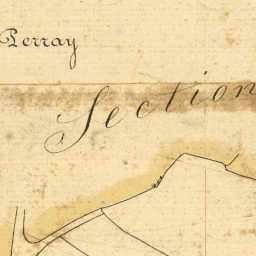 Perray
Section